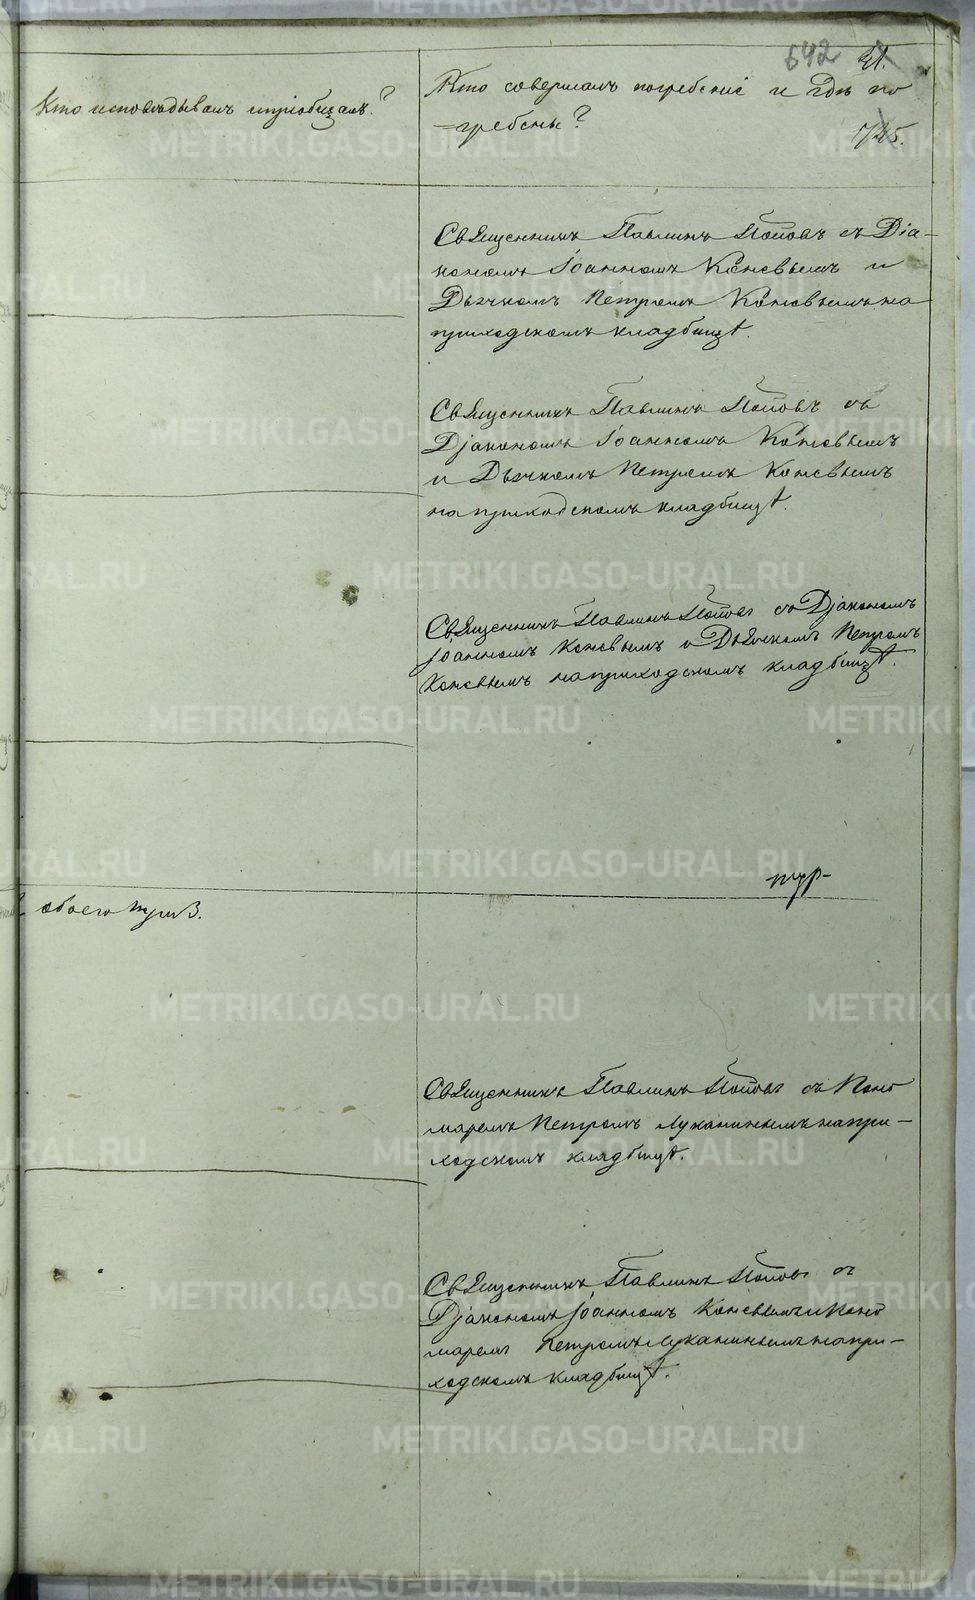 642 21.
Кто исповѣдывалъ и пріобщалъ?
Кто совершалъ погребеніе и гдѣ по
=гребены?
Священникъ Павлинъ Поповъ съ Діа-
кономъ Іоанномъ Коневымъ и
Дьячкомъ Петромъ Коневымъ на
приходскомъ кладбищѣ.
Священникъ Павлинъ Поповъ съ
Діакономъ Іоанномъ Коневымъ
и Дьячкомъ Петромъ Коневымъ
на приходскомъ кладбищѣ.
Священникъ Павлинъ Поповъ съ Діакономъ
Іоанномъ Коневымъ и Дьячкомъ Петромъ
Коневымъ на приходскомъ кладбищѣ.
обоего три 3.
Священникъ Павлинъ Поповъ съ Поно
маремъ Петромъ Луканинымъ на при-
ходскомъ кладбищѣ.
Священникъ Павлинъ Поповъ съ
Діакономъ Іоанномъ Коневымъ и Поно
маремъ Петромъ Луканинымъ на при-
ходскомъ кладбищѣ.
METRIKI.GASO-URAL.RU